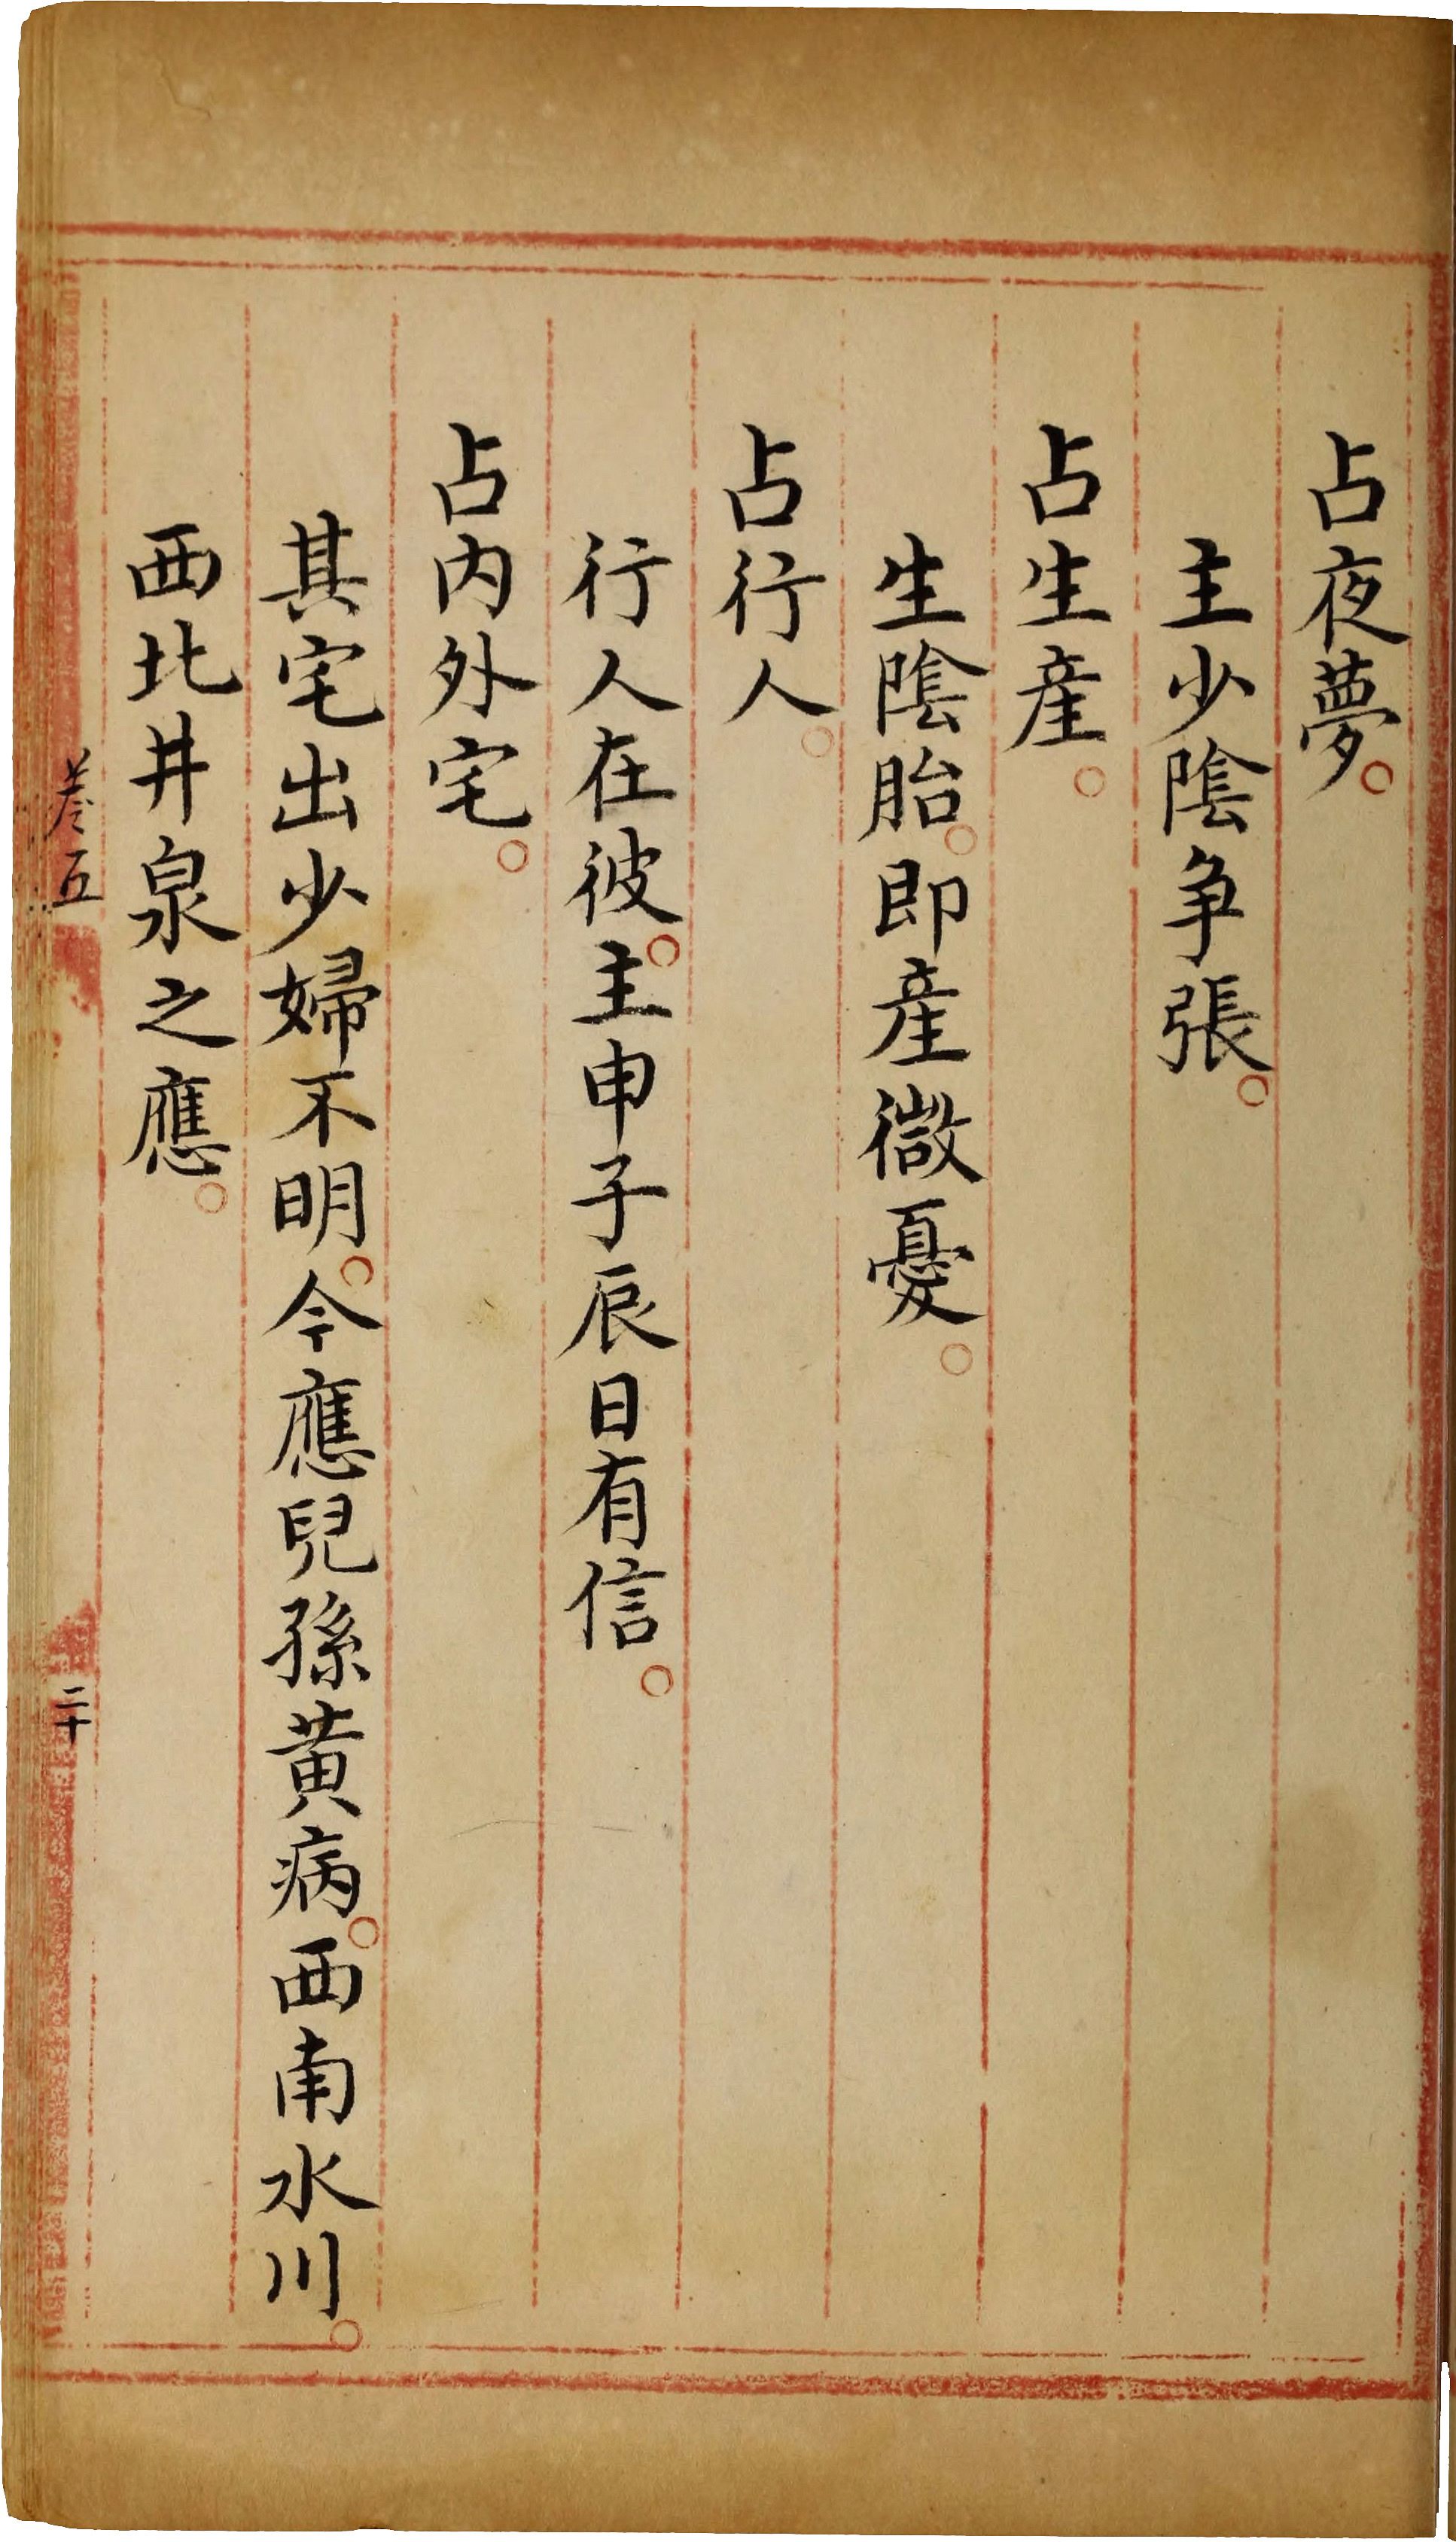 占夜夢。
主少陰争張。
占生産。
生陰胎。即産微憂。
占行人。
行人在彼。主申子辰日有信。
占内外宅。
其宅出少婦不明。今應兒孫黄病。西南水川。
西北井泉之應。
卷五
二十